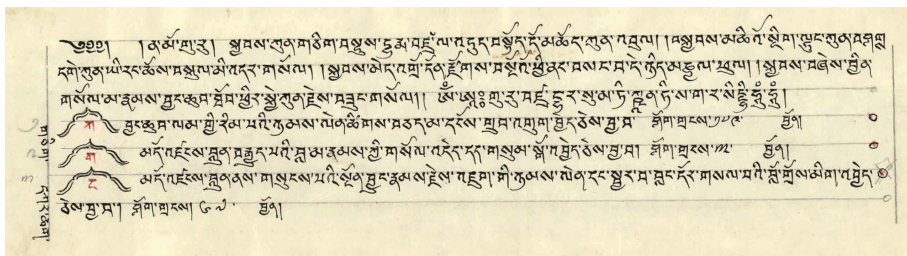 ༄༅༅། །ན་མོ་གུ་རུ། སྐྱབས་ཀུན་གཅིག་བསྡུས་དྷརྨ་བཛྲ་ལ་འདུད་བསྟོད་དོ་མཆོད་ཀུན་འབུལ། །བསྐྱབས་མཆིའོ་སྡིག་ལྟུང་ཀུན་བཤགས
དགེ་ཀུན་ཡི་རང་ཆོས་བསྐུལ་མི་འདར་གསོལ། །སྐྱབས་མེད་འགྲོ་དོན་རྫོགས་བསྔོའོ་ཕྱི་ནང་བསང་བ་དེ་ཉིད་མཎྜལ་ཕུལ། །སྐྱབས་བཞེས་བྱིན
གསོལ་མ་རྣམས་བྱང་ཆུབ་ཐོབ་ཕྱིར་སྐྱེ་ཀུན་རྗེས་བཟུང་གསོལ།། ཨོཾ་ཨཱཿ་གུ་རུ་བཛྲ་དྷར་སུ་མ་ཏི་ ཀཱིརྟི་སིདྡྷི་ཧཱུྃ་ཧཱུྃ།
༡ ཀ བྱང་ཆུབ་ལམ་གྱི་རིམ་པའི་ཉམས་ལེན་ཚིགས་བཅད་མ་དངོས་གྲུབ་འགུག་བྱེད་ཅེས་བྱ་བ་ ཤོག་གྲངས་ བྱོན།
༢ ག མདོ་འཛིངས་བླན་བརྒྱུད་པའི་བླ་མ་རྣམས་ཀྱི་གསོལ་འདེད་དད་གསུམ་སྒོ་འབྱེད་ཅེས་བྱ་བ། ཤོག་གྲངས་༣་ བྱོན།
༣ ང མདོ་འཛིངས་བླན་ནས་གསུངས་པའི་སྔོན་བྱུང་རྣམས་རྗེས་འཇུག་གི་ཉམས་ལེན་དང་སྦྱར་བ་བླང་དོར་གསལ་བའི་བློ་གྲོས་མིག་འབྱེད་
ཅེས་བྱ་བ། ཤོག་གྲངས། ༦༧ བྱོན།